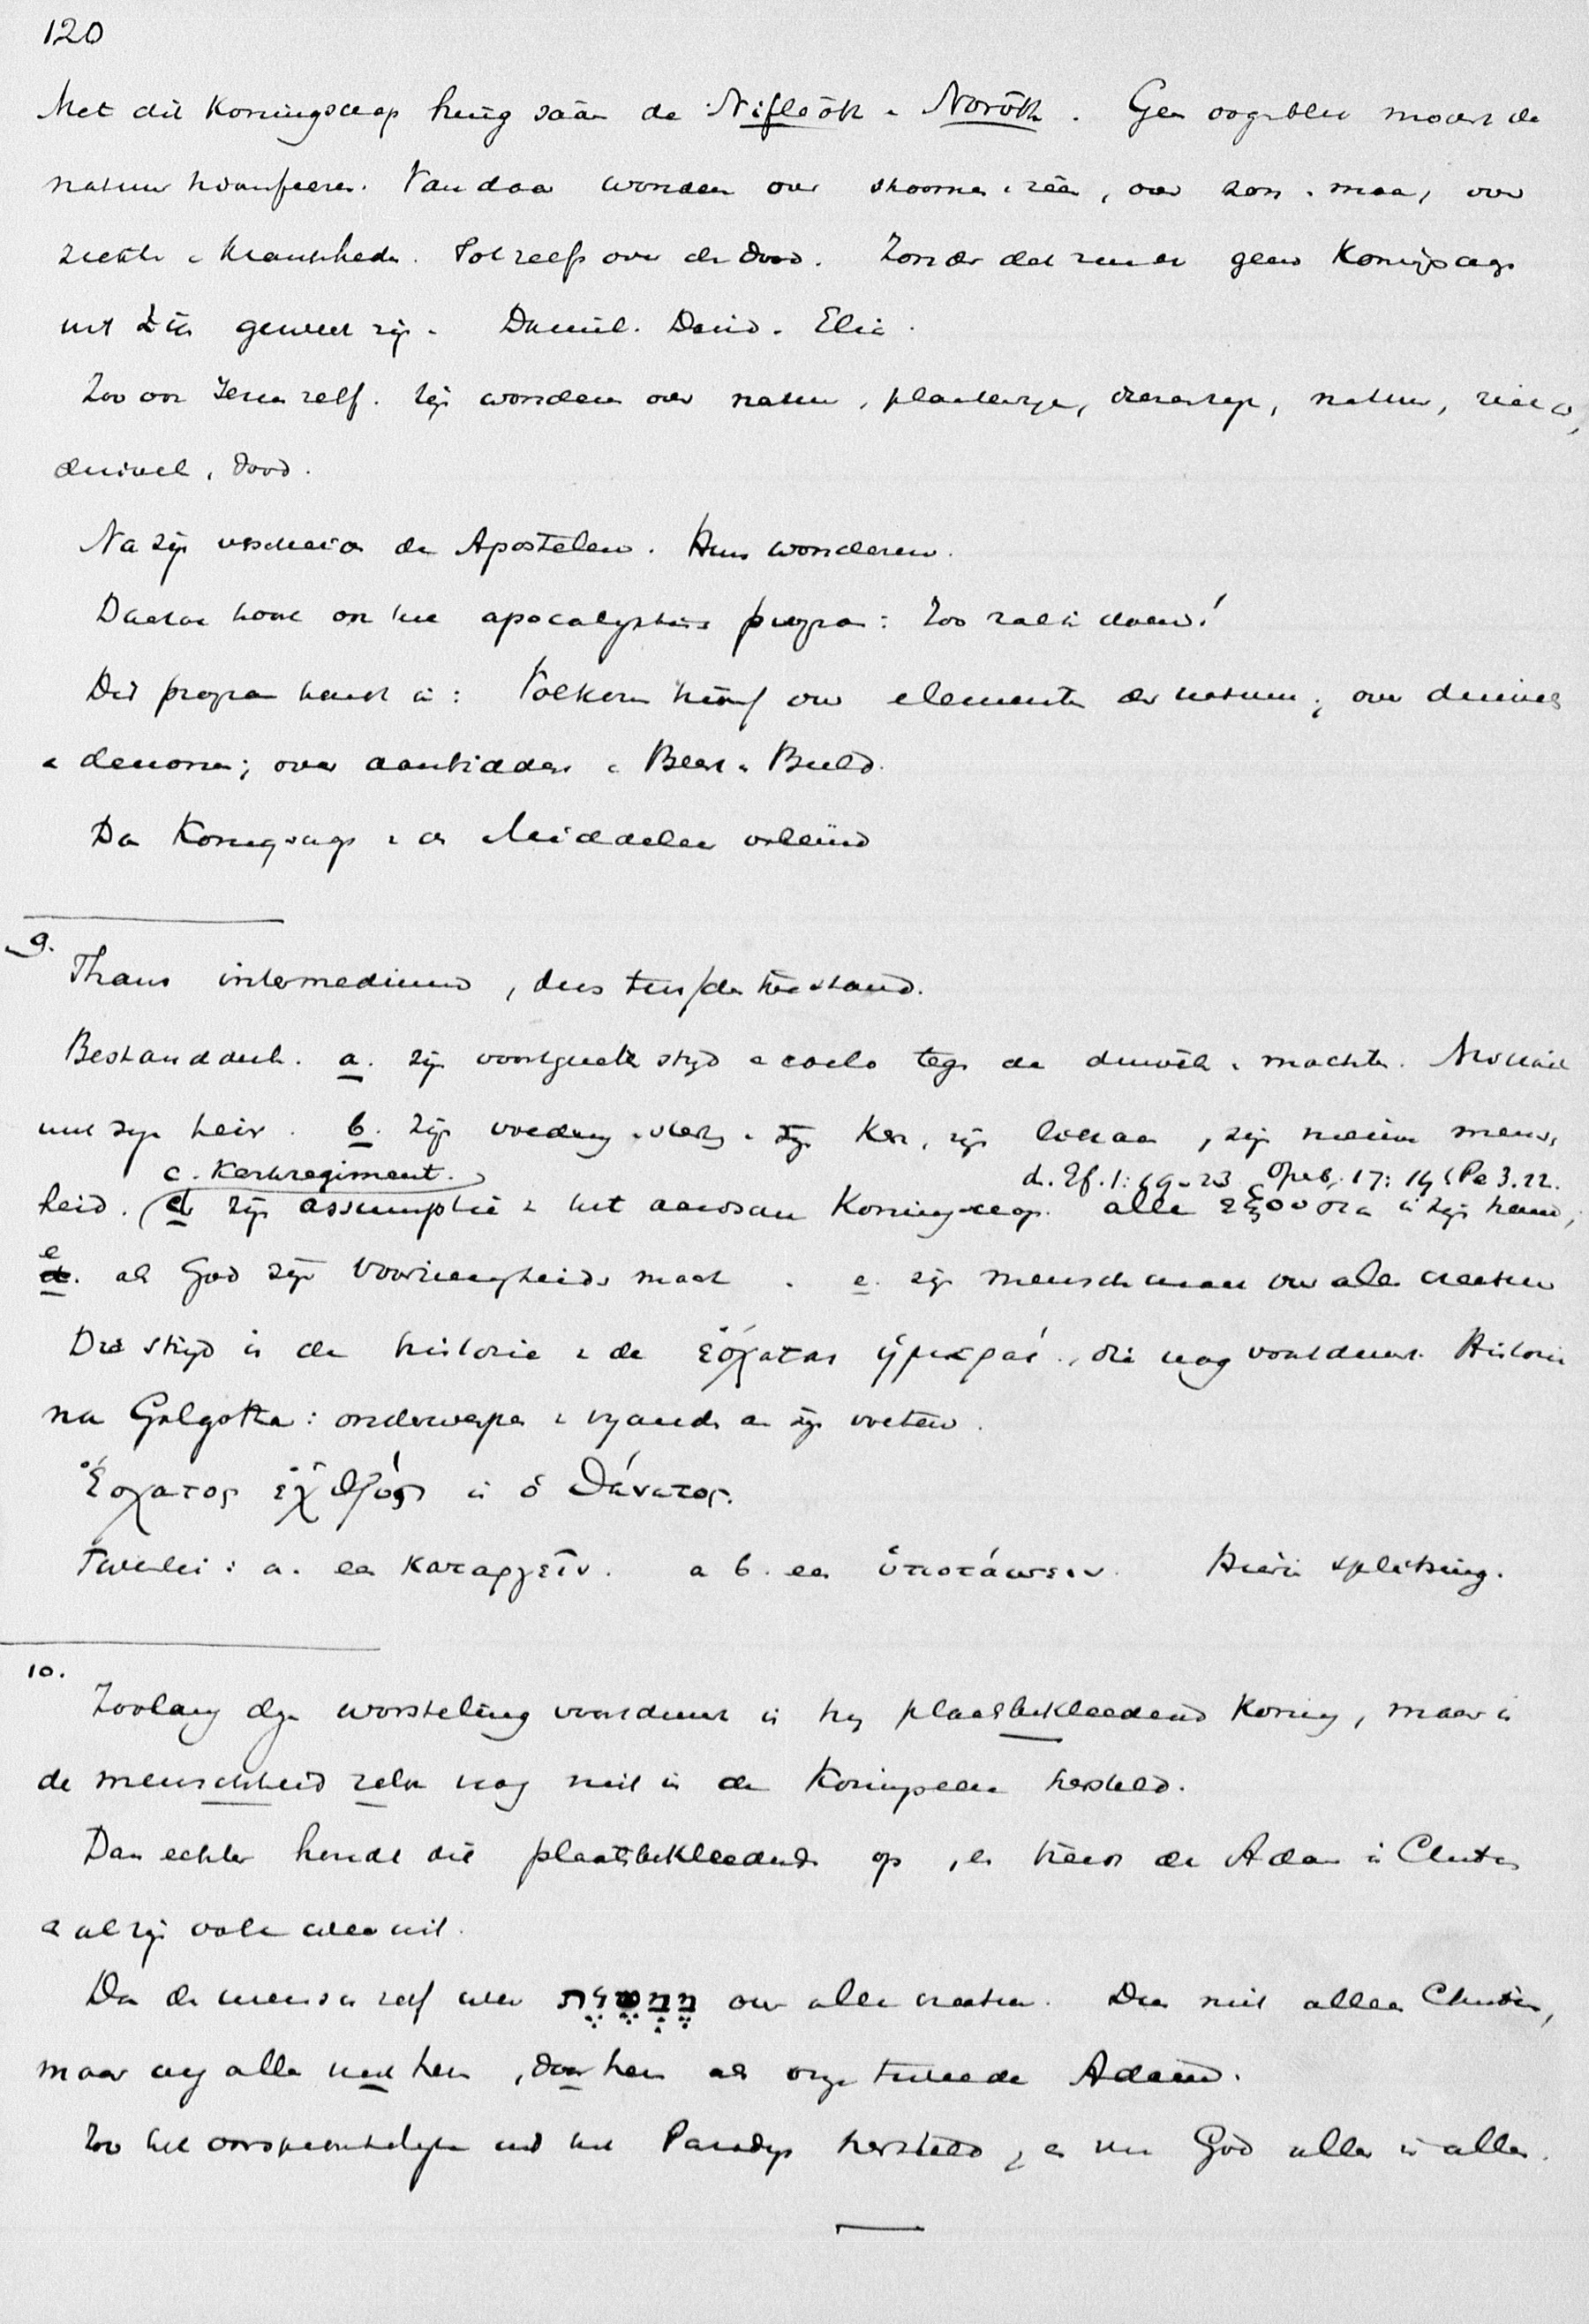 120
Met dit Koningschap hing saâm de Nifleôth en Norôth. Geen oogenblik moest de
natuur triumfeeren. Van daar wonderen over stroomen en zeeën, over zon en maan, over
ziekte en krankheden. Tot zelfs over den dood. Zonder dat zou er geen Koningschap
uit geweest zijn. Daniël. David. Elia.
Zoo ook Jezus zelf. Zijn wonderen over natuur, plantenrijk, dierenrijk, natuur, ziekte,
duivel, dood.
Na zijn verscheiden de Apostelen. Hun wonderen.
Daarna komt het apocalyptisch program: Zoo zal ik doen!
Dit program houdt in: Volkomen triumf over elementen der natuur; over duivel
en demonen; over aanbidders en Beest en Beeld.
Dan Koningschap en de Middelaar
9.
Thans intermedium, dus tusschentoestand.
Bestanddeelen. a. zijn voortgezette strijd e coelo tegen de duivelen en machten. Michaël
met zijn heir. b. Zijn voeding en sterking zijn Kerk, zijn lichaam, zijn nieuwe mensch-
c. Kerkregiment. d. Ef. 1:19-23 Openb. 17:14 1 Pe 3.22.
heid. d zijn assumptie het aardsche Koningschap. alle ἐξουσία in zijn hand;
e
d. als God zijn Voorzienigheids macht. e. zijn menschmacht over alle creatuur
Die strijd is de historie de ἔσχαται ἡμέραι, die nog voortduurt. Historie
na Golgotha: onderwerpen vijanden aan zijn voeten.
Ἔσχατος ἐχθρός is ὁ θάνατος.
Tweeërlei: a. een καταργεῖν. en b. een ὑποτάσσειν. Hierin splitsing.
10.
Zoolang deze worsteling voortduurt is hij plaatsbekleedend Koning, maar is
de menschheid zelve nog niet in de Koningseere hersteld.
Dan echter houdt dit plaatsbekleedende op, en treedt de Adam in Christus
en al zijn volk uit.
Dan de mensch zelf weer מֶמְשֶׁלֶת over alle creatuur. Dan niet alleen Christus,
maar wij allen met hem, door hem als onze tweede Adam.
Zoo het oorspronkelijke uit het Paradijs hersteld, en nu God alles in allen.